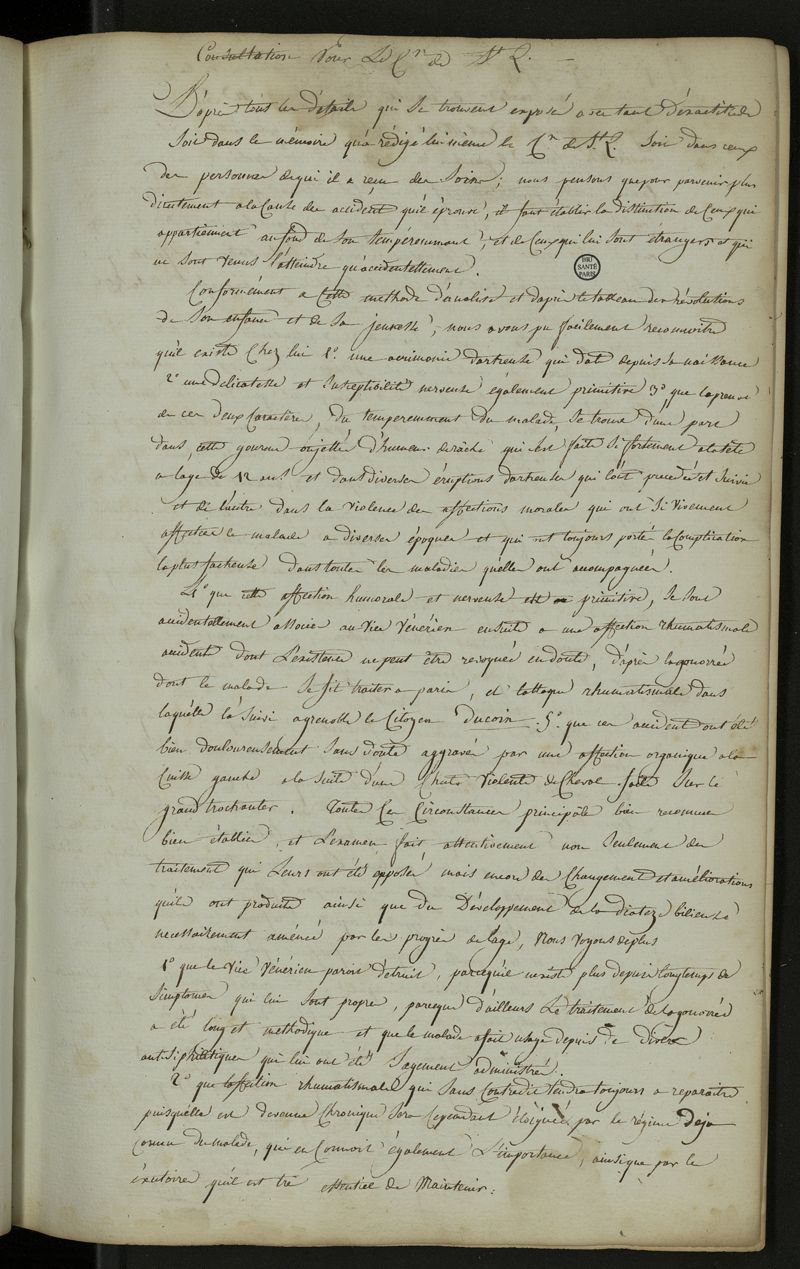 Consultation Pour Le Cn de St R. —
D'après tous les détails qui se trouvent exposé avec tant d'exactitude
soit dans le mémoire qu'a rédigé lui même le Cn de St. R. soit dans ceux
des personnes de qui il a reçu des soins; nous pensons que pour parvenir plus
directement a la Cause des accidents qu'il éprouve, il faut établir la distinction de Ceux qui
appartiennent au fond de son tempérament, et de Ceux qui lui sont étrangers et qui
ne sont venus l'atteindre qu'accidentellement.
BIU SANTÉ PARIS
Conformément a Cette methode d'analise et d'après le tableau des révolutions
de son enfance et de sa jeunesse, nous avons pu facilement reconnoitre
qu'il existe Chez lui 1°. une acrimonie dartreuse qui date depuis sa naissance
2° une délicatesse et susceptibilité nerveuse également primitive 3°. que la preuve
de ces deux Caractères, du temperamment du malade, se trouve d'une part
dans, cette gourme ou jettée d'humeur de rache qui s'est faite si fortement a la tête
a l'age de 12 ans et dans diverses éruptions dartreuses qui l'ont précédé et suivie
et de l'autre dans la violence des affections morales qui ont si vivement
affecté le malade a diverses époques et qui ont toujours porté la Complication
la plus facheuse dans toutes les maladies qu'elles ont accompagnées.
4° que cette affection humorale et nerveuse est primitive, se sont
accidentellement associé au vice Vénérien ensuite a une affection rhumatismale
accidents dont l'existence ne peut être revoquée en doute, d'après la gonorrée
dont le malade se fit traiter a paris, et l'attaque rhumatismale dans
laquelle l'a suivi a grenoble le Citoyen Ducoin. 5°. que ces accidents ont été
bien douloureusement sans doute aggravés par une affection organique a la
Cuisse gauche a la suite d'une Chute Violente de Cheval faite sur le
grand trochanter. Toutes Ces Circonstances principales bien reconnues
bien établies, et l'examen fait attentivement non seulement des
traitement qui Leurs ont été opposé mais encore des Changement et améliorations
qu'ils ont produits ainsi que du Développement de la diateze bilieuse
necessairement amenée par les progrès de l'age, Nous voyons de plus
1° que le Vice Vénérien paroit détruit, parcequ'il n'existe plus depuis longtemps de
simptomes qui lui sont propre, parceque d'ailleurs Le traitement de la gonorrée
a été long et methodique et que le malade a fait usage depuis de divers
antisiphilitiques qui lui ont été sagement administré.
2° que l'affection rhumatismale qui sans Contredit tendra toujours a reparaitre
puisqu'elle est devenue Chronique sera Cependant éloignée par le régime Deja
connu du malade, qui en Connoit également L'importance, ainsi que par le
éxutoire qu'il est très essentiel de Maintenir.